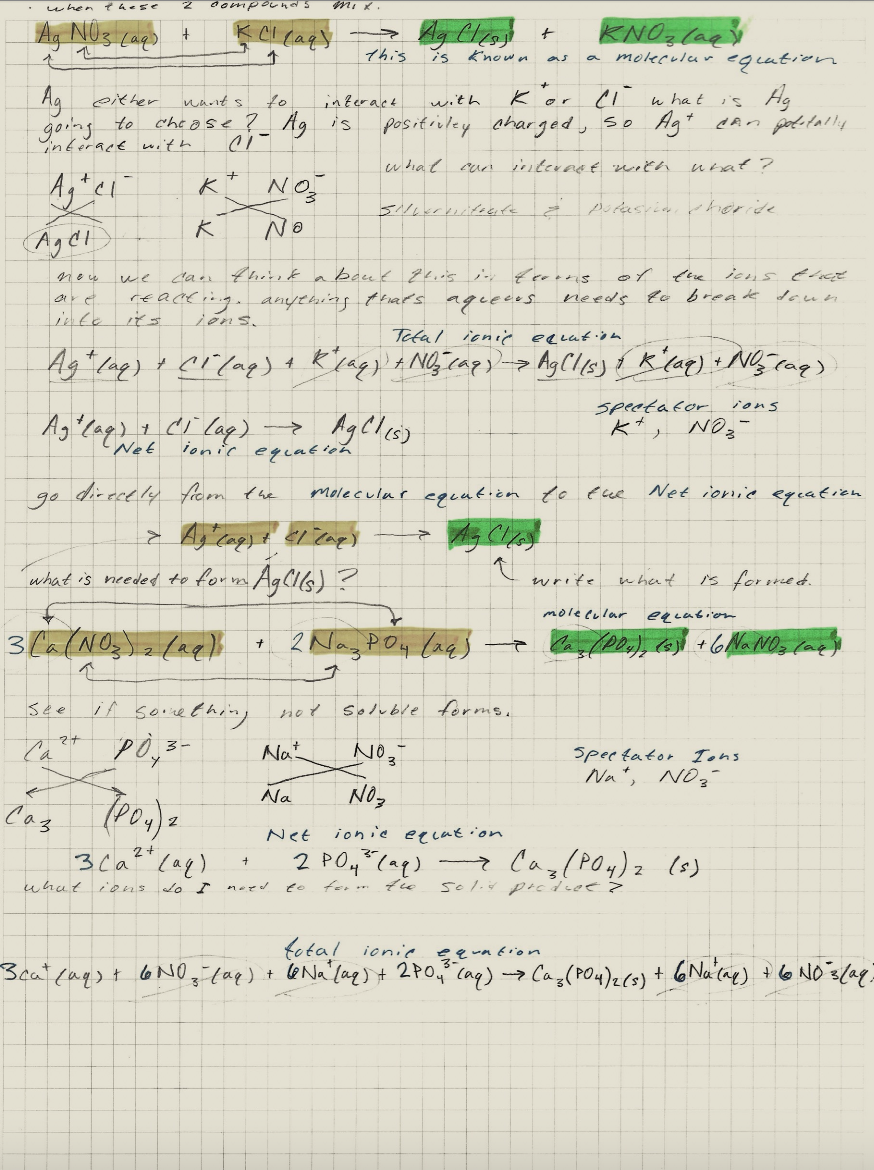 · when these 2 compounds mix.
AgNO₃(aq) + KCl(aq) → AgCl(s) + KNO₃(aq)
This is known as a molecular equation
Ag either wants to interact with K⁺ or Cl⁻ what is Ag
going to choose? Ag is positivley charged, so Ag⁺ can
interact with Cl⁻
what can interact with what?
Ag⁺Cl⁻ K⁺ NO₃⁻
silvernitrate & potasium choride
AgCl K No
now we can think about this in terms of the ions that
are reacting. anything thats aqueous needs to break down
into its ions.
Total ionic equation
Ag⁺(aq) + Cl⁻(aq) + K⁺(aq) + NO₃⁻(aq) → AgCl(s) + K⁺(aq) + NO₃⁻(aq)
spectator ions
Ag⁺(aq) + Cl⁻(aq) → AgCl(s) K⁺, NO₃⁻
Net ionic equation
go directly from the molecular equation to the Net ionic equation
> Ag⁺(aq) + Cl⁻(aq) → AgCl(s)
what is needed to form AgCl(s)? write what is formed.
molecular equation
3Ca(NO₃)₂(aq) + 2Na₃PO₄(aq) → Ca₃(PO₄)₂(s) + 6NaNO₃(aq)
see if something not soluble forms.
Ca²⁺ PO₄³⁻ Na⁺ NO₃⁻ Spectator Ions
Na⁺, NO₃⁻
Ca₃ (PO₄)₂ Na NO₃
Net ionic equation
3Ca²⁺(aq) + 2PO₄³⁻(aq) → Ca₃(PO₄)₂ (s)
what ions do I need to form the solid product?
total ionic equation
3Ca⁺(aq) + 6NO₃⁻(aq) + 6Na⁺(aq) + 2PO₄³⁻(aq) → Ca₃(PO₄)₂(s) + 6Na⁺(aq) + 6NO⁻₃(aq)